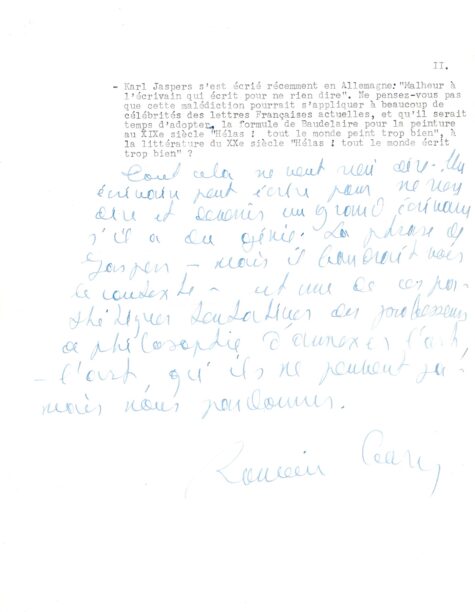 II.
- Karl Jaspers s'est écrié récemment en Allemagne: "Malheur à
l'écrivain qui écrit pour ne rien dire". Ne pensez-vous pas
que cette malédiction pourrait s'appliquer à beaucoup de
célébrités des lettres Françaises actuelles, et qu'il serait
temps d'adopter, la formule de Baudelaire pour la peinture
au XIXe siècle "Hélas ! tout le monde peint trop bien", à
la littérature du XXe siècle "Hélas ! tout le monde écrit
trop bien" ?
Tout cela ne veut rien dire. Un
écrivain peut écrire pour ne rien
dire et devenir un grand écrivain
s'il a du génie. La phrase de
Jaspers – mais il faudrait voir
le contexte – est une de ces pa-
thétiques tentatives des professeurs
de philosophie d'annexer l'art
– l'art qu'ils ne peuvent ja-
mais nous pardonner.
Romain Gary